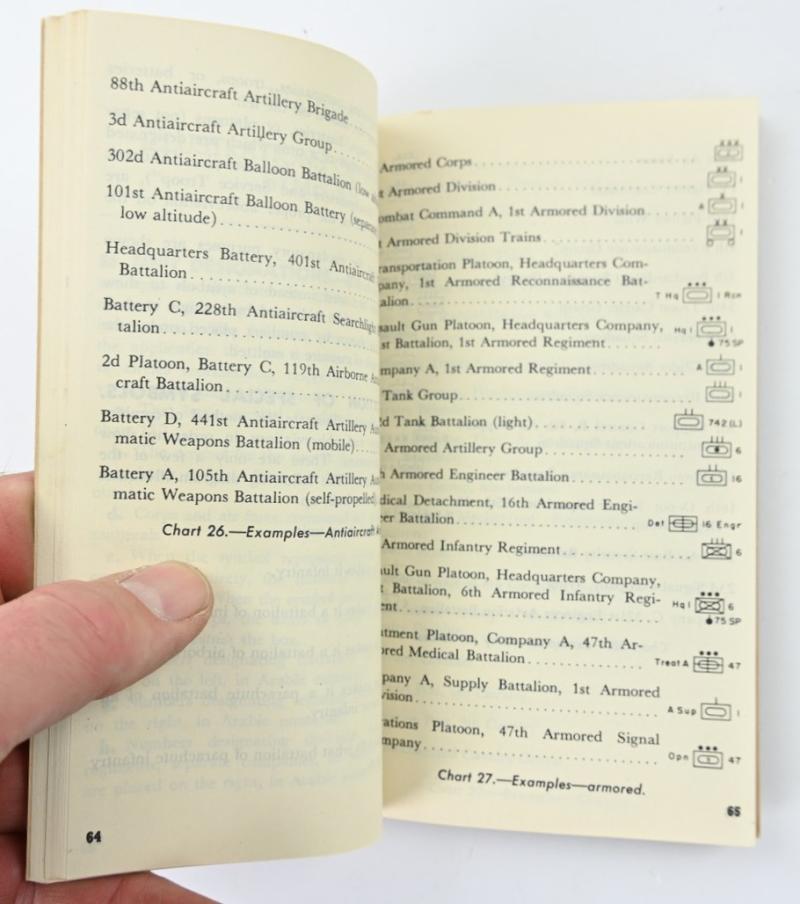 88th Antiaircraft Artillery Brigade
3d Antiaircraft Artillery Group
302d Antiaircraft Balloon Battalion (low
101st Antiaircraft Balloon Battery (separate
low altitude)
Headquarters Battery, 401st Antiaircraft
Battalion
Battery C, 228th Antiaircraft Searchlight
talion
2d Platoon, Battery C, 119th Airborne
craft Battalion
Battery D, 441st Antiaircraft Artillery
matic Weapons Battalion (mobile)
Battery A, 105th Antiaircraft Artillery
matic Weapons Battalion (self-propelled)
Chart 26.—Examples—Antiaircraft
64
Armored Corps
t Armored Division 1
ombat Command A, 1st Armored Division A 1
t Armored Division Trains 1
ransportation Platoon, Headquarters Com-
pany, 1st Armored Reconnaissance Bat-
alion T Hq 1 Rcn
sault Gun Platoon, Headquarters Company, Hq 1 1
st Battalion, 1st Armored Regiment 75 SP
mpany A, 1st Armored Regiment A 1
Tank Group 1
d Tank Battalion (light) 742 (L)
Armored Artillery Group 6
h Armored Engineer Battalion 16
dical Detachment, 16th Armored Engi-
er Battalion Det 16 Engr
Armored Infantry Regiment 6
ult Gun Platoon, Headquarters Company,
t Battalion, 6th Armored Infantry Regi- Hq 1 6
ent 75 SP
tment Platoon, Company A, 47th Ar-
ored Medical Battalion Treat A 47
pany A, Supply Battalion, 1st Armored
vision A Sup 1
ations Platoon, 47th Armored Signal
mpany Opn 47
Chart 27.—Examples—armored.
65